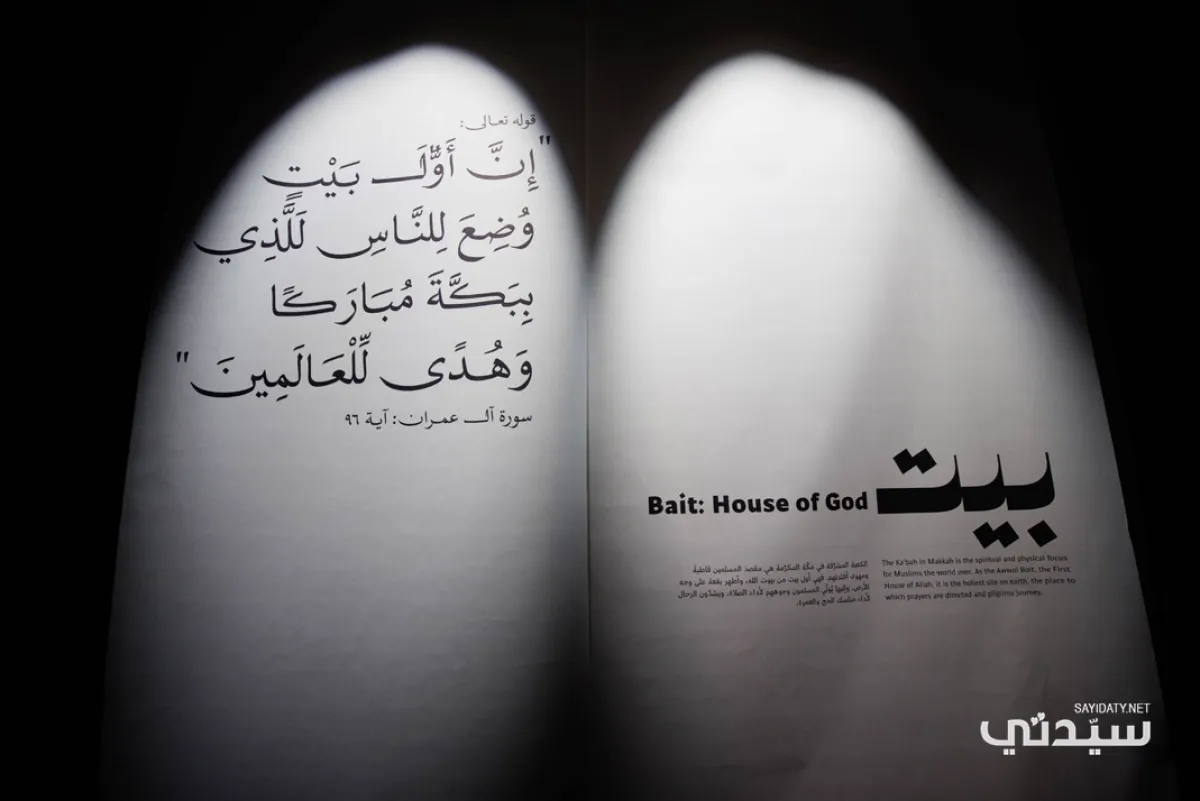 قوله تعالى:
"إِنَّ أَوَّلَ بَيْتٍ
وُضِعَ لِلنَّاسِ لَلَّذِي
بِبَكَّةَ مُبَارَكًا
وَهُدًى لِّلْعَالَمِينَ"
سورة آل عمران: آية ٩٦
بيت
Bait: House of God
الكعبة المشرّفة في مكّة المكرّمة هي مقصد المسلمين قاطبةً
ومهوى أفئدتهم. فهي أول بيت من بيوت الله، وأطهر بقعة على وجه
الأرض، وإليها يُولّي المسلمون وجوههم لأداء الصلاة، ويشدّون الرحال
لأداء مناسك الحج والعمرة.
The Ka'bah in Makkah is the spiritual and physical focus
for Muslims the world over. As the Awwal Bait, the First
House of Allah, it is the holiest site on earth, the place to
which prayers are directed and pilgrims journey.
SAYIDATY.NET
سيّدتي